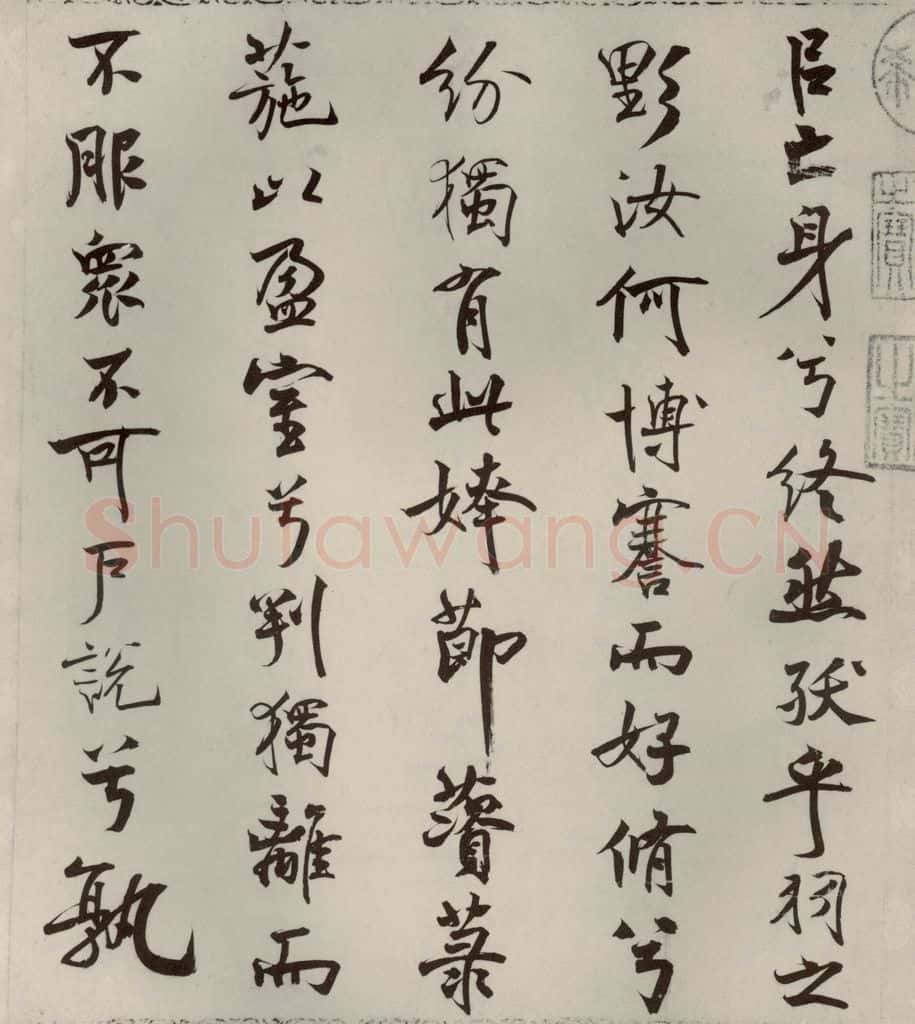 㠯亡身兮終然殀乎羽之
野汝何博謇而好脩兮
紛獨有此姱節薋菉
葹以盈室兮判獨離而
不服衆不可户說兮孰
Shufawang.CN
之寶
之寶